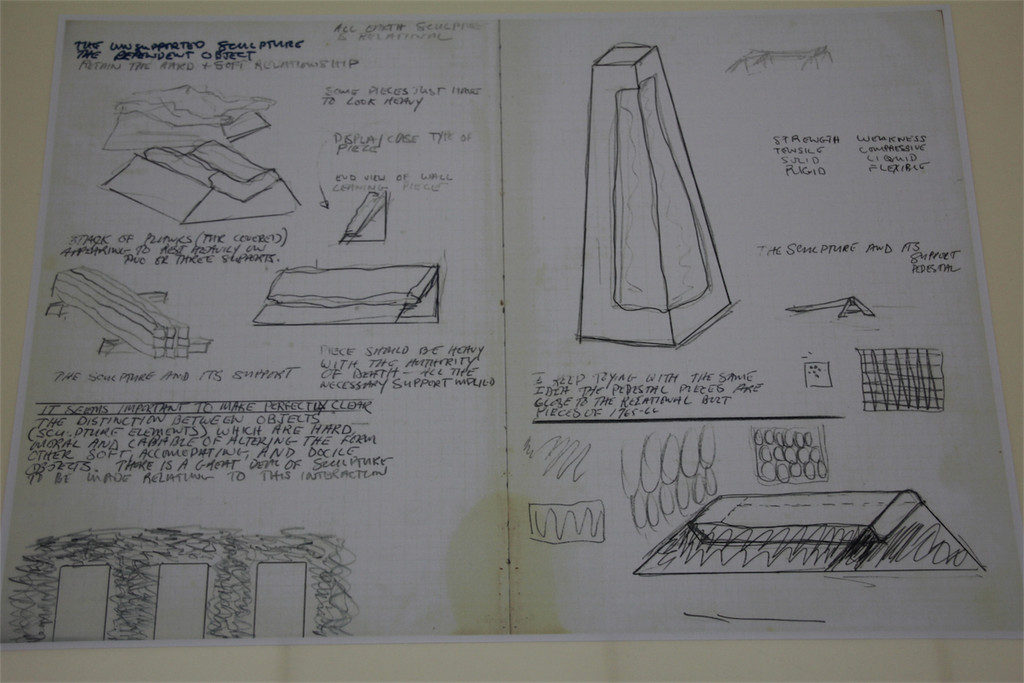 ALL EARTH SCULPTURE
IS RELATIONAL
THE UNSUPPORTED SCULPTURE
THE DEPENDENT OBJECT
RETAIN THE HARD + SOFT RELATIONSHIP
SOME PIECES JUST HAVE
TO LOOK HEAVY
DISPLAY CASE TYPE OF
PIECE
END VIEW OF WALL
LEANING PIECE
STACK OF PLANKS (TAR COVERED)
APPEARING TO REST HEAVILY ON
TWO OR THREE SUPPORTS.
THE SCULPTURE AND ITS SUPPORT
PIECE SHOULD BE HEAVY
WITH THE AUTHORITY
OF DEATH - ALL THE
NECESSARY SUPPORT IMPLIED
IT SEEMS IMPORTANT TO MAKE PERFECTLY CLEAR
THE DISTINCTION BETWEEN OBJECTS
(SCULPTURE ELEMENTS) WHICH ARE HARD,
AND CAPABLE OF ALTERING THE FORM
OTHER SOFT, ACCOMODATING, AND DOCILE
OBJECTS. THERE IS A GREAT DEAL OF SCULPTURE
TO BE MADE RELATING TO THIS INTERACTION
STRENGTH WEAKNESS
TENSILE COMPRESSIVE
SOLID LIQUID
RIGID FLEXIBLE
THE SCULPTURE AND ITS
SUPPORT
PEDESTAL
I KEEP TOYING WITH THE SAME
IDEA THE PEDESTAL PIECES ARE
CLOSE TO THE RELATIONAL BUTT
PIECES OF 1965-66